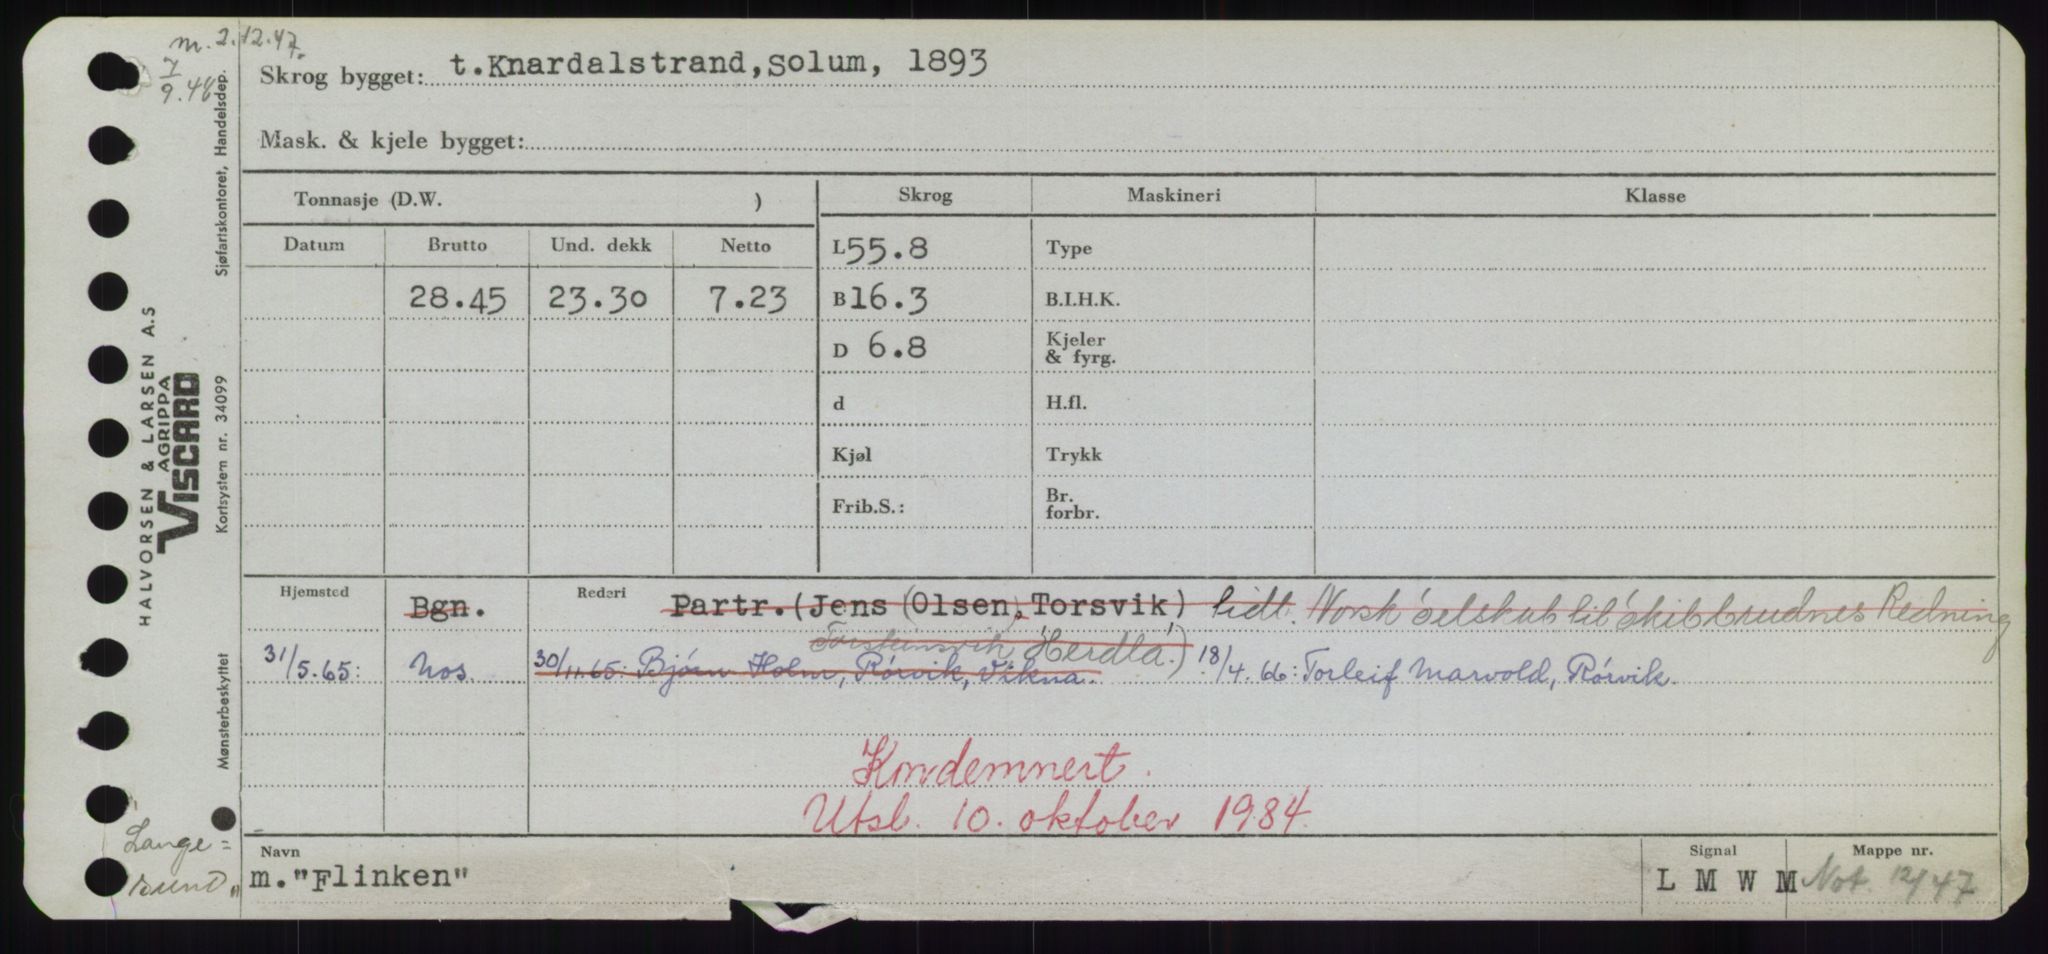 m. 2.12.47.
7
9.48
Skrog bygget: t.Knardalstrand, Solum, 1893
Mask. & kjele bygget:
Tonnasje (D.W. )
Skrog
Maskineri
Klasse
Datum
Brutto
Und. dekk
Netto
L 55.8
Type
28.45
23.30
7.23
B 16.3
B.I.H.K.
D 6.8
Kjeler
& fyrg.
d
H.fl.
Kjøl
Trykk
Frib.S.:
Br.
forbr.
Hjemsted
Bgn.
Rederi
Partr. (Jens (Olsen, Torsvik) tidl. Norsk Selskab til Skibbrudnes Redning
Herdla.)
31/5.65:
Nos.
30/11.65: Bjørn Holm, Rørvik, Vikna. 18/4.66: Torleif Marvold, Rørvik.
Kondemnert.
Utsl. 10. oktober 1984.
Navn
m."Flinken"
Signal
L M W M
Mappe nr.
Not. 12/47
Lange=
sund"
HALVORSEN & LARSEN A.S
AGRIPPA
VISCARD
Mønsterbeskyttet
Kortsystem nr. 34099
Sjøfartskontoret, Handelsdep.